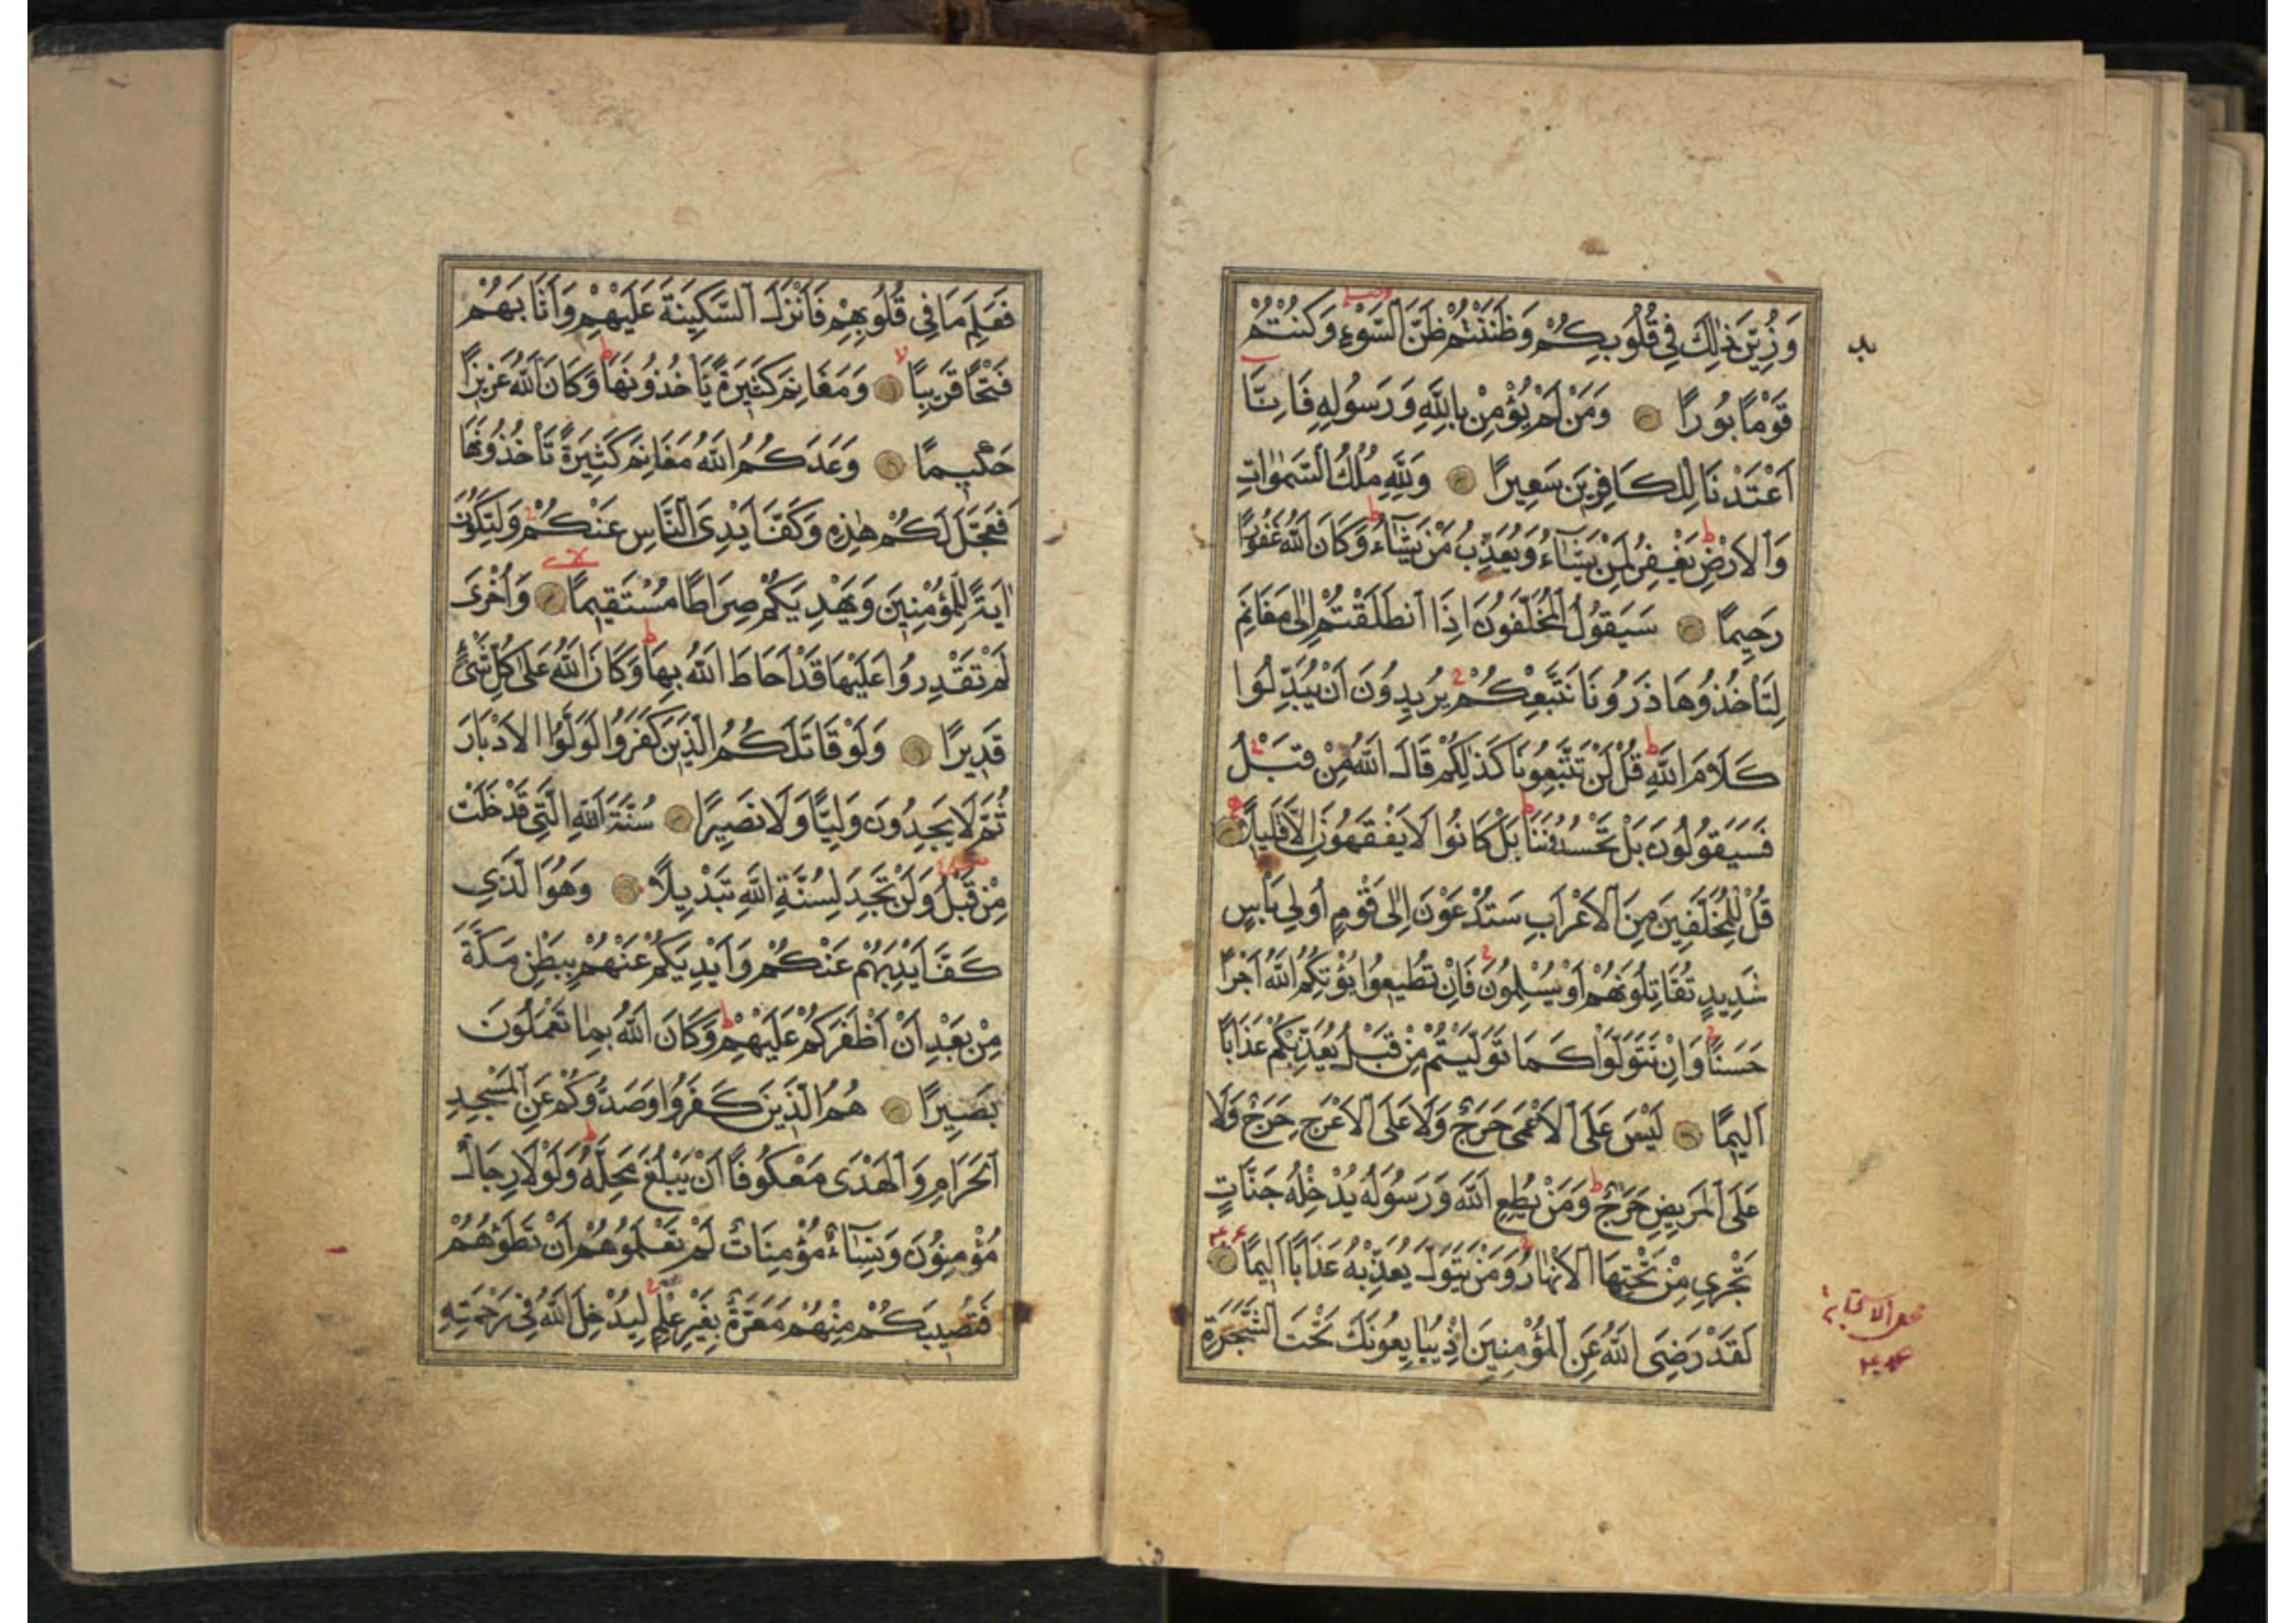 وَزُيِّنَ ذٰلِكَ فِي قُلُوبِكُمْ وَظَنَنْتُمْ ظَنَّ السَّوْءِ وَكُنْتُمْ
قَوْمًا بُورًا وَمَنْ لَمْ يُؤْمِنْ بِاللّٰهِ وَرَسُولِهِ فَاِنَّا
اَعْتَدْنَا لِلْكَافِرِينَ سَعِيرًا وَلِلّٰهِ مُلْكُ السَّمٰوَاتِ
وَالْاَرْضِ يَغْفِرُ لِمَنْ يَشَاءُ وَيُعَذِّبُ مَنْ يَشَاءُ وَكَانَ اللّٰهُ غَفُورًا
رَحِيمًا سَيَقُولُ الْمُخَلَّفُونَ اِذَا انْطَلَقْتُمْ اِلٰى مَغَانِمَ
لِتَأْخُذُوهَا ذَرُونَا نَتَّبِعْكُمْ يُرِيدُونَ اَنْ يُبَدِّلُوا
كَلَامَ اللّٰهِ قُلْ لَنْ تَتَّبِعُونَا كَذٰلِكُمْ قَالَ اللّٰهُ مِنْ قَبْلُ
فَسَيَقُولُونَ بَلْ تَحْسُدُونَنَا بَلْ كَانُوا لَا يَفْقَهُونَ اِلَّا قَلِيلًا
قُلْ لِلْمُخَلَّفِينَ مِنَ الْاَعْرَابِ سَتُدْعَوْنَ اِلٰى قَوْمٍ اُولِي بَأْسٍ
شَدِيدٍ تُقَاتِلُونَهُمْ اَوْ يُسْلِمُونَ فَاِنْ تُطِيعُوا يُؤْتِكُمُ اللّٰهُ اَجْرًا
حَسَنًا وَاِنْ تَتَوَلَّوْا كَمَا تَوَلَّيْتُمْ مِنْ قَبْلُ يُعَذِّبْكُمْ عَذَابًا
اَلِيمًا لَيْسَ عَلَى الْاَعْمٰى حَرَجٌ وَلَا عَلَى الْاَعْرَجِ حَرَجٌ وَلَا
عَلَى الْمَرِيضِ حَرَجٌ وَمَنْ يُطِعِ اللّٰهَ وَرَسُولَهُ يُدْخِلْهُ جَنَّاتٍ
تَجْرِي مِنْ تَحْتِهَا الْاَنْهَارُ وَمَنْ يَتَوَلَّ يُعَذِّبْهُ عَذَابًا اَلِيمًا
لَقَدْ رَضِيَ اللّٰهُ عَنِ الْمُؤْمِنِينَ اِذْ يُبَايِعُونَكَ تَحْتَ الشَّجَرَةِ
فَعَلِمَ مَا فِي قُلُوبِهِمْ فَاَنْزَلَ السَّكِينَةَ عَلَيْهِمْ وَاَثَابَهُمْ
فَتْحًا قَرِيبًا وَمَغَانِمَ كَثِيرَةً يَأْخُذُونَهَا وَكَانَ اللّٰهُ عَزِيزًا
حَكِيمًا وَعَدَكُمُ اللّٰهُ مَغَانِمَ كَثِيرَةً تَأْخُذُونَهَا
فَعَجَّلَ لَكُمْ هٰذِهِ وَكَفَّ اَيْدِيَ النَّاسِ عَنْكُمْ وَلِتَكُونَ
اٰيَةً لِلْمُؤْمِنِينَ وَيَهْدِيَكُمْ صِرَاطًا مُسْتَقِيمًا وَاُخْرٰى
لَمْ تَقْدِرُوا عَلَيْهَا قَدْ اَحَاطَ اللّٰهُ بِهَا وَكَانَ اللّٰهُ عَلٰى كُلِّ شَيْءٍ
قَدِيرًا وَلَوْ قَاتَلَكُمُ الَّذِينَ كَفَرُوا لَوَلَّوُا الْاَدْبَارَ
ثُمَّ لَا يَجِدُونَ وَلِيًّا وَلَا نَصِيرًا سُنَّةَ اللّٰهِ الَّتِي قَدْ خَلَتْ
مِنْ قَبْلُ وَلَنْ تَجِدَ لِسُنَّةِ اللّٰهِ تَبْدِيلًا وَهُوَ الَّذِي
كَفَّ اَيْدِيَهُمْ عَنْكُمْ وَاَيْدِيَكُمْ عَنْهُمْ بِبَطْنِ مَكَّةَ
مِنْ بَعْدِ اَنْ اَظْفَرَكُمْ عَلَيْهِمْ وَكَانَ اللّٰهُ بِمَا تَعْمَلُونَ
بَصِيرًا هُمُ الَّذِينَ كَفَرُوا وَصَدُّوكُمْ عَنِ الْمَسْجِدِ
الْحَرَامِ وَالْهَدْيَ مَعْكُوفًا اَنْ يَبْلُغَ مَحِلَّهُ وَلَوْلَا رِجَالٌ
مُؤْمِنُونَ وَنِسَاءٌ مُؤْمِنَاتٌ لَمْ تَعْلَمُوهُمْ اَنْ تَطَؤُهُمْ
فَتُصِيبَكُمْ مِنْهُمْ مَعَرَّةٌ بِغَيْرِ عِلْمٍ لِيُدْخِلَ اللّٰهُ فِي رَحْمَتِهِ